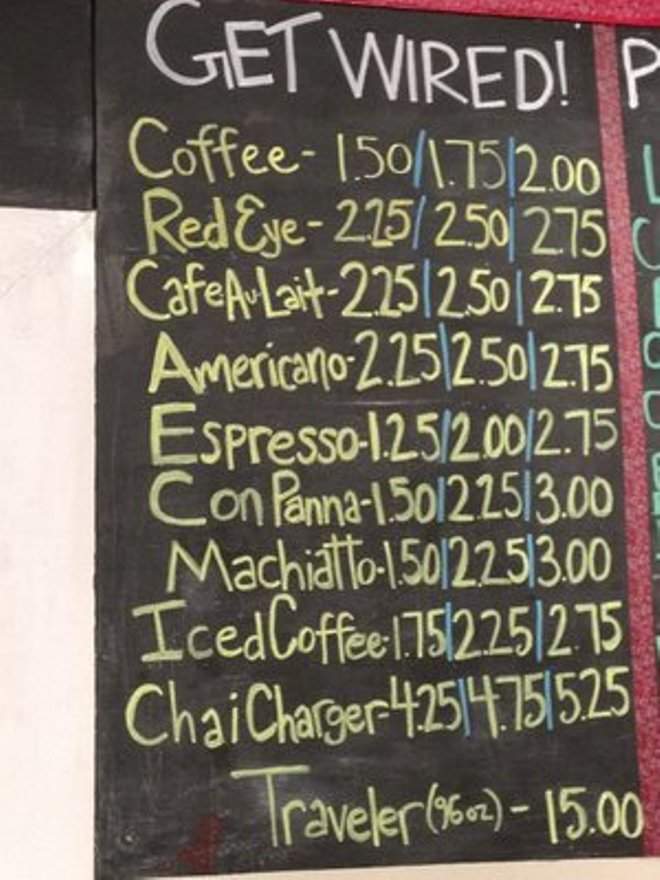 GET WIRED!
Coffee - 1.50/1.75|2.00
Red Eye - 2.25/2.50|2.75
Cafe Au Lait - 2.25|2.50|2.75
Americano - 2.25|2.50|2.75
Espresso - 1.25|2.00|2.75
Con Panna - 1.50|2.25|3.00
Machiatto - 1.50|2.25|3.00
Iced Coffee - 1.75|2.25|2.75
Chai Charger - 4.25|4.75|5.25
Traveler (96 oz) - 15.00